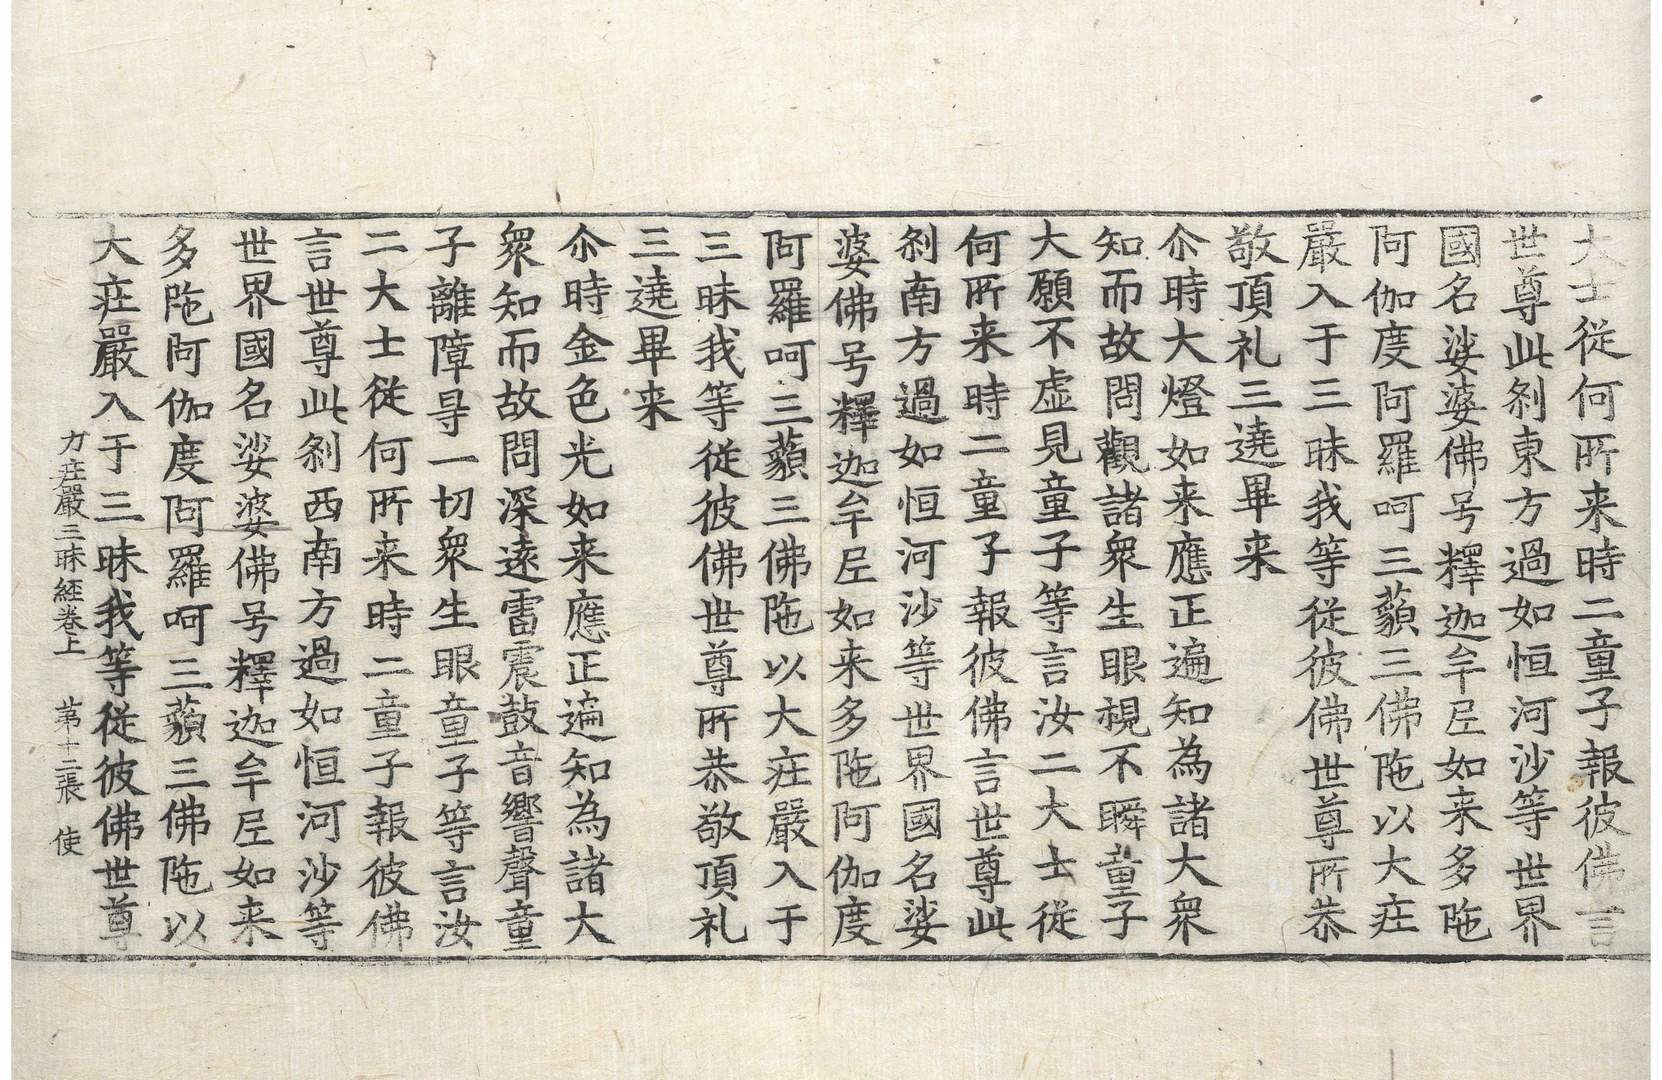 大士從何所来時二童子報彼佛言
世尊此刹東方過如恒河沙等世界
國名娑婆佛号釋迦牟尼如来多陁
阿伽度阿羅呵三藐三佛陁以大庄
嚴入于三昧我等從彼佛世尊所恭
敬頂礼三遶畢来
尒時大燈如来應正遍知為諸大衆
知而故問觀諸衆生眼視不瞬童子
大願不虛見童子等言汝二大士從
何所来時二童子報彼佛言世尊此
刹南方過如恒河沙等世界國名娑
婆佛号釋迦牟尼如来多陁阿伽度
阿羅呵三藐三佛陁以大庄嚴入于
三昧我等從彼佛世尊所恭敬頂礼
三遶畢来
尒時金色光如来應正遍知為諸大
衆知而故問深遠雷震鼓音響聲童
子離障㝵一切衆生眼童子等言汝
二大士從何所来時二童子報彼佛
言世尊此刹西南方過如恒河沙等
世界國名娑婆佛号釋迦牟尼如来
多陁阿伽度阿羅呵三藐三佛陁以
大庄嚴入于三昧我等從彼佛世尊
力庄嚴三昧経卷上 苐十二張 使